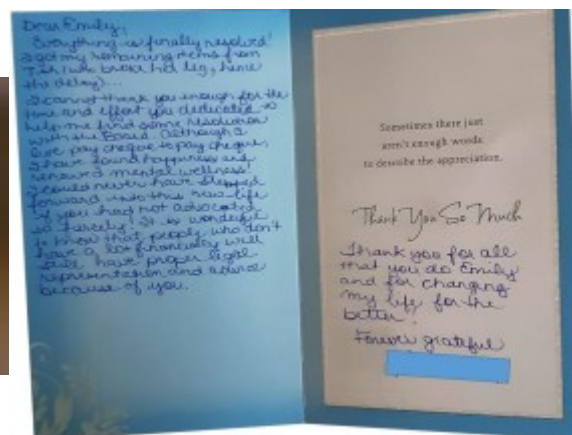 Dear Emily,
Everything is finally resolved!
I got my remaining items from
(who broke his leg, hence
the delay)...
I cannot thank you enough for the
time and effort you dedicated to
help me find some resolution
with the Board. Although I
live pay cheque to pay cheque,
I have found happiness and
renewed mental wellness!
I could never have stepped
forward into this new life
if you had not advocated
so fiercely. It is wonderful
to know that people who don't
have a lot financially will
still have proper legal
representation and advice
because of you.
Sometimes there just
aren't enough words
to describe the appreciation.
Thank You So Much
Thank you for all
that you do Emily
and for changing
my life for the
better!
Forever grateful